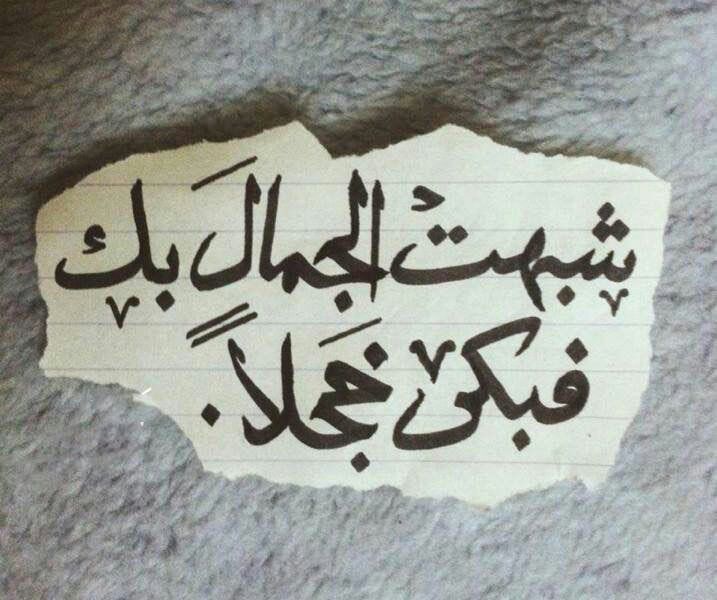 شبهتُ الجمالَ بك
فبكى خجَلاً.